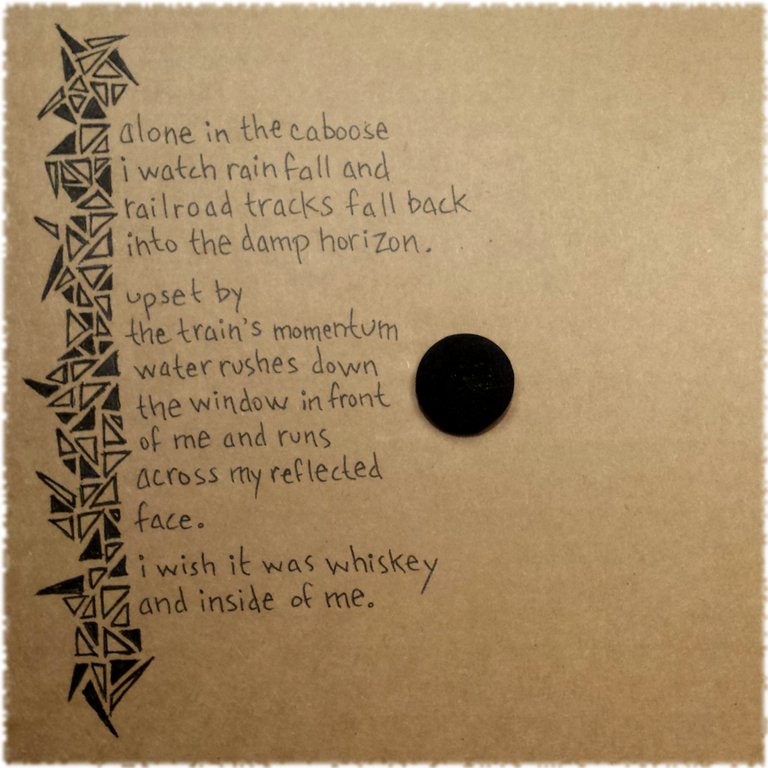 alone in the caboose
i watch rain fall and
railroad tracks fall back
into the damp horizon.
upset by
the train's momentum
water rushes down
the window in front
of me and runs
across my reflected
face.
i wish it was whiskey
and inside of me.